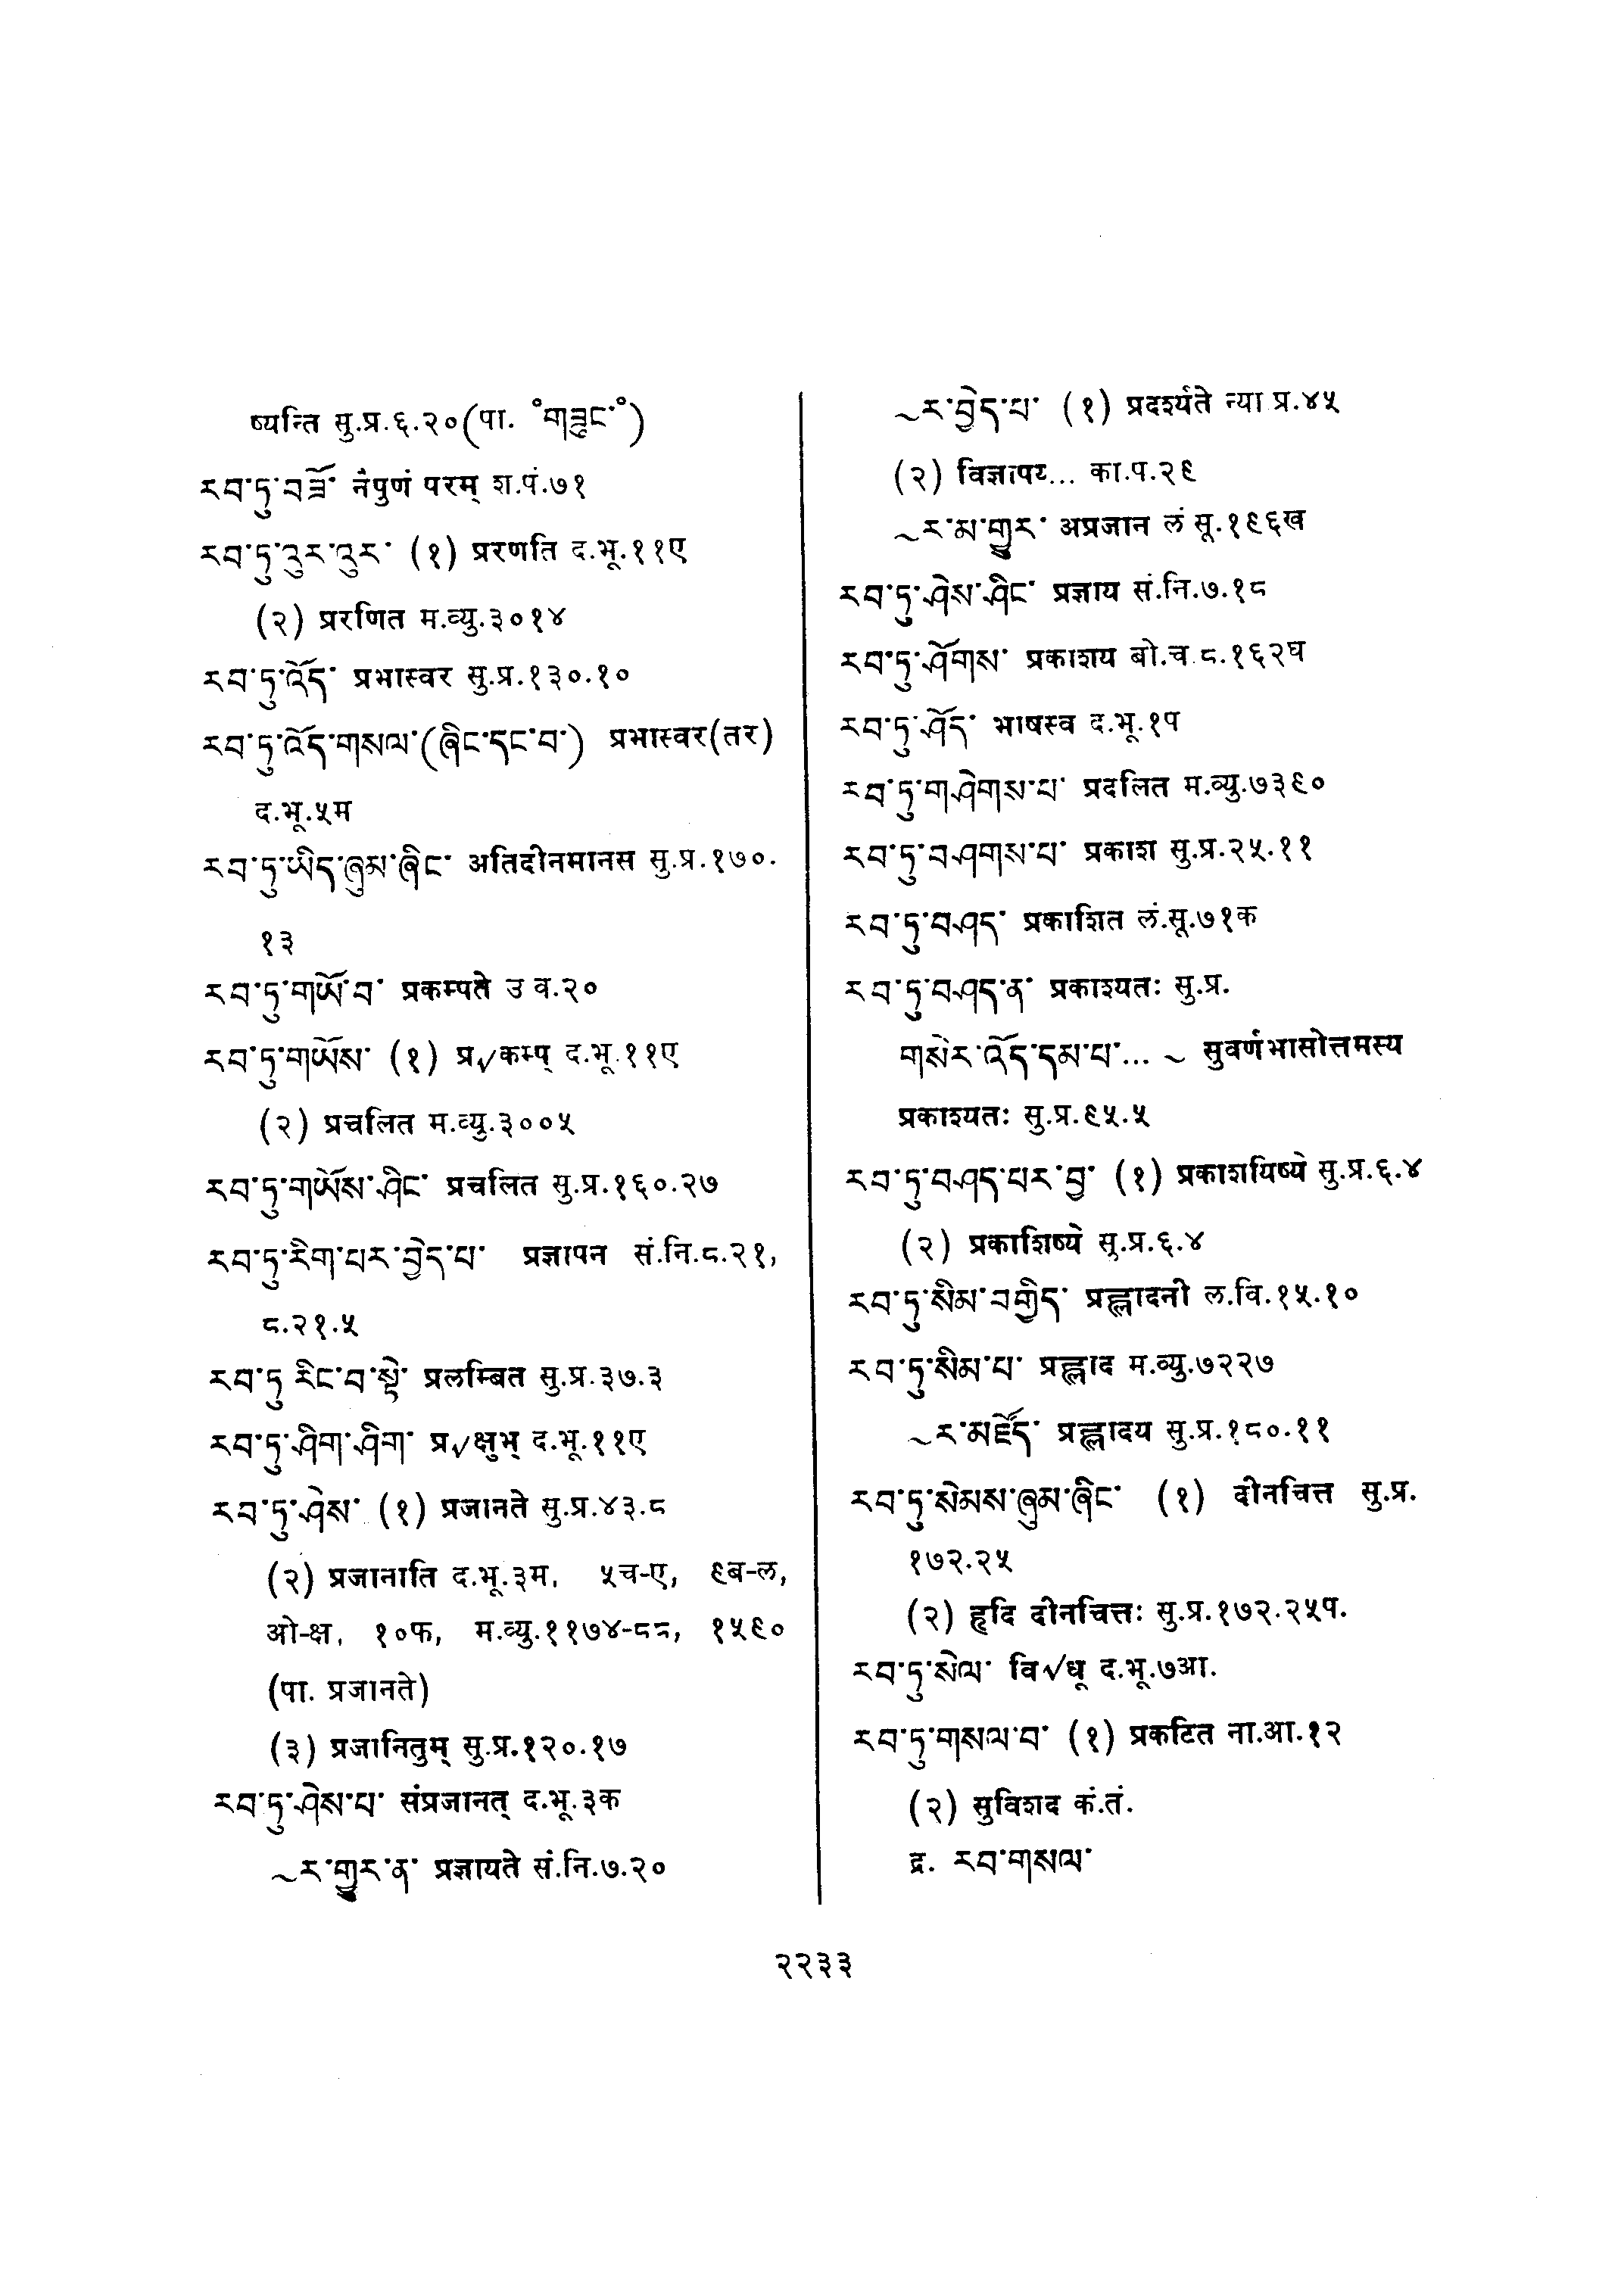 ष्यन्ति सु.प्र.६.२०(पा. °གཟུང་°)
རབ་ཏུ་བཟོ་ नैपुणं परम् श.पं.७१
རབ་ཏུ་འུར་འུར་ (१) प्ररणति द.भू.११ए
(२) प्ररणित म.व्यु.३०१४
རབ་ཏུ་འོད་ प्रभास्वर सु.प्र.१३०.१०
རབ་ཏུ་འོད་གསལ་(ཞིང་དང་བ་) प्रभास्वर(तर)
द.भू.५म
རབ་ཏུ་ཡིད་ཞུམ་ཞིང་ अतिदीनमानस सु.प्र.१७०.
१३
རབ་ཏུ་གཡོ་བ་ प्रकम्पते उ व.२०
རབ་ཏུ་གཡོས་ (१) प्र√कम्प् द.भू.११ए
(२) प्रचलित म.व्यु.३००५
རབ་ཏུ་གཡོས་ཤིང་ प्रचलित सु.प्र.१६०.२७
རབ་ཏུ་རིག་པར་བྱེད་པ་ प्रज्ञापन सं.नि.८.२१,
८.२१.५
རབ་ཏུ རིང་བ་སྟེ་ प्रलम्बित सु.प्र.३७.३
རབ་ཏུ་ཤིག་ཤིག་ प्र√क्षुभ् द.भू.११ए
རབ་ཏུ་ཤེས་ (१) प्रजानते सु.प्र.४३.८
(२) प्रजानाति द.भू.३म, ५च-ए, ९ब-ल,
ओ-क्ष, १०फ, म.व्यु.११७४-८८, १५९०
(पा. प्रजानते)
(३) प्रजानितुम् सु.प्र.१२०.१७
རབ་ཏུ་ཤེས་པ་ संप्रजानत् द.भू.३क
~ར་གྱུར་ན་ प्रज्ञायते सं.नि.७.२०
~ར་བྱེད་པ་ (१) प्रदर्श्यते न्या प्र.४५
(२) विज्ञापय... का.प.२९
~ར་མ་གྱུར་ अप्रजान लं सू.१९६ख
རབ་ཏུ་ཤེས་ཤིང་ प्रज्ञाय सं.नि.७.१८
རབ་ཏུ་ཤོགས་ प्रकाशय बो.च.८.१६२घ
རབ་ཏུ་ཤོད་ भाषस्व द.भू.१प
རབ་ཏུ་གཤེགས་པ་ प्रदलित म.व्यु.७३९०
རབ་ཏུ་བཤགས་པ་ प्रकाश सु.प्र.२५.११
རབ་ཏུ་བཤད་ प्रकाशित लं.सू.७१क
རབ་ཏུ་བཤད་ན་ प्रकाश्यतः सु.प्र.
གསེར་འོད་དམ་པ་... ~ सुवर्णभासोत्तमस्य
प्रकाश्यतः सु.प्र.९५.५
རབ་ཏུ་བཤད་པར་བྱ་ (१) प्रकाशयिष्ये सु.प्र.६.४
(२) प्रकाशिष्ये सु.प्र.६.४
རབ་ཏུ་སིམ་བགྱིད་ प्रह्लादनी ल.वि.१५.१०
རབ་ཏུ་སིམ་པ་ प्रह्लाद म.व्यु.७२२७
~ར་མཛོད་ प्रह्लादय सु.प्र.१८०.११
རབ་ཏུ་སེམས་ཞུམ་ཞིང་ (१) दीनचित्त सु.प्र.
१७२.२५
(२) हृदि दीनचित्तः सु.प्र.१७२.२५प.
རབ་ཏུ་སེལ་ वि√धू द.भू.७आ.
རབ་ཏུ་གསལ་བ་ (१) प्रकटित ना.आ.१२
(२) सुविशद कं.तं.
द्र. རབ་གསལ་
२२३३